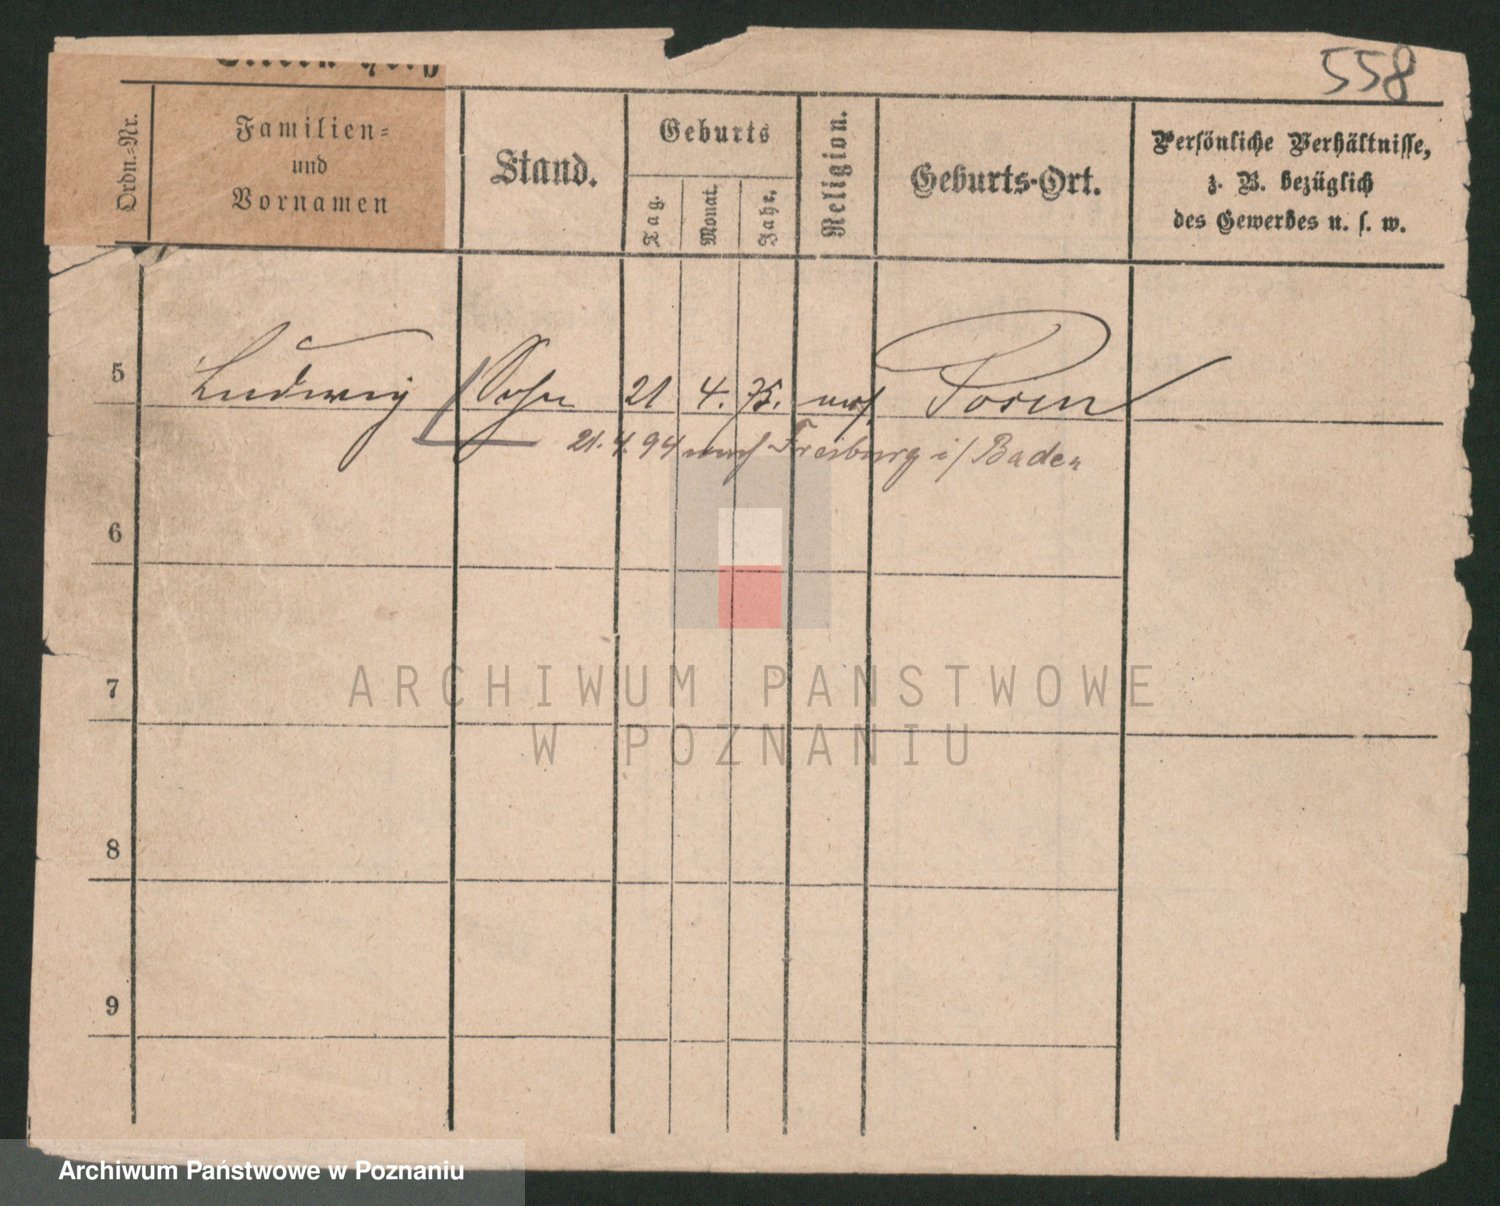 558
Ordn.-Nr.
Familien-
und
Vornamen
Stand.
Geburts
Tag.
Monat.
Jahr.
Religion.
Geburts-Ort.
Persönliche Verhältnisse,
z. B. bezüglich
des Gewerbes u. s. w.
5 Ludwig Sohn 21 4. 75. mos. Posen
21. 4. 94 nach Freiburg i/Baden
6
7
8
9
ARCHIWUM PAŃSTWOWE
W POZNANIU
Archiwum Państwowe w Poznaniu